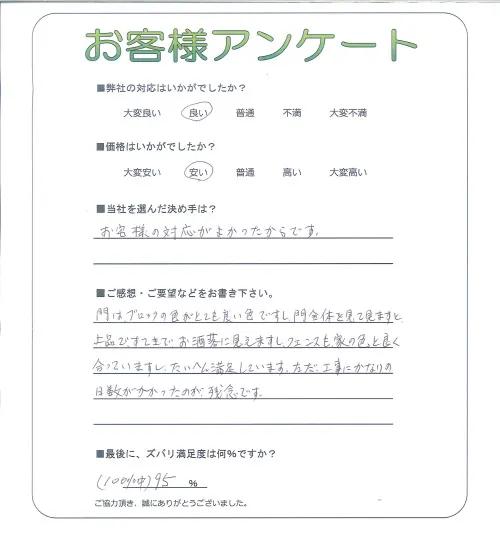 お客様アンケート
■弊社の対応はいかがでしたか？
大変良い 良い 普通 不満 大変不満
■価格はいかがでしたか？
大変安い 安い 普通 高い 大変高い
■当社を選んだ決め手は？
お客様の対応がよかったからです。
■ご感想・ご要望などをお書き下さい。
門はブロックの色がとても良い色ですし、門全体を見て見ますと、
上品ですてきで、お洒落に見えますし、フェンスも、家の色と良く
合っていますし、たいへん満足しています。ただ、工事にかなりの
日数がかかったのが、残念です。
■最後に、ズバリ満足度は何％ですか？
(100%中) 95 %
ご協力頂き、誠にありがとうございました。